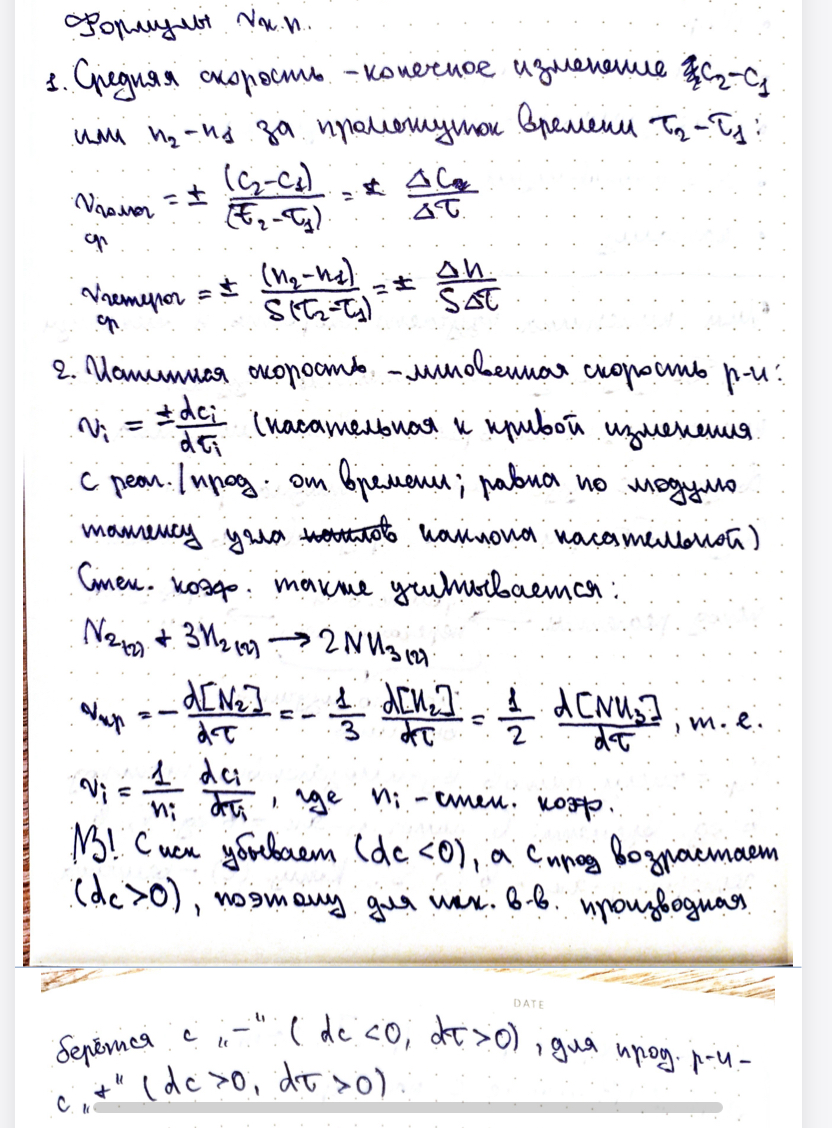 Формулы vх.п.
1. Средняя скорость – конечное изменение c₂–c₁
или n₂–n₁ за промежуток времени τ₂–τ₁:
vгомог ср = ± (c₂–c₁)/(τ₂–τ₁) = ± Δc/Δτ
vгетерог ср = ± (n₂–n₁)/S(τ₂–τ₁) = ± Δn/SΔτ
2. Истинная скорость – мгновенная скорость р-и:
vᵢ = ± dcᵢ/dτᵢ (касательная к кривой изменения
с реаг./прод. от времени; равна по модулю
тангенсу угла наклона касательной)
Стех. коэф. также учитывается:
N₂(г) + 3H₂(г) → 2NH₃(г)
vхр = – d[N₂]/dτ = – 1/3 d[H₂]/dτ = 1/2 d[NH₃]/dτ, т.е.
vᵢ = 1/nᵢ dcᵢ/dτᵢ, где nᵢ – стех. коэф.
NB! C исх убывает (dc <0), а c прод возрастает
(dc >0), поэтому для исх. в-в. производная
DATE
берётся с „–“ (dc <0, dτ >0), для прод. р-и –
с „+“ (dc >0, dτ >0)